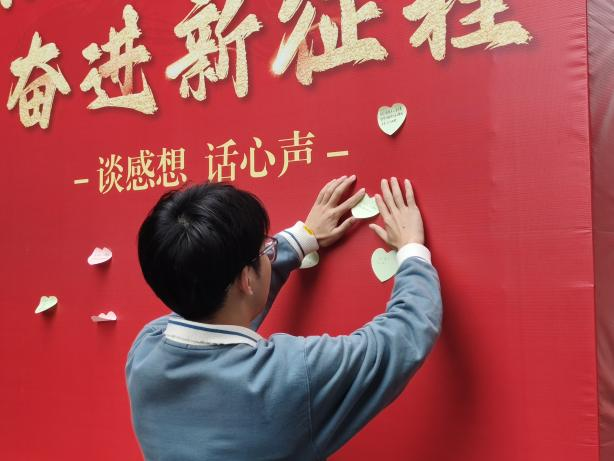 奋进新征程
-谈感想 话心声-